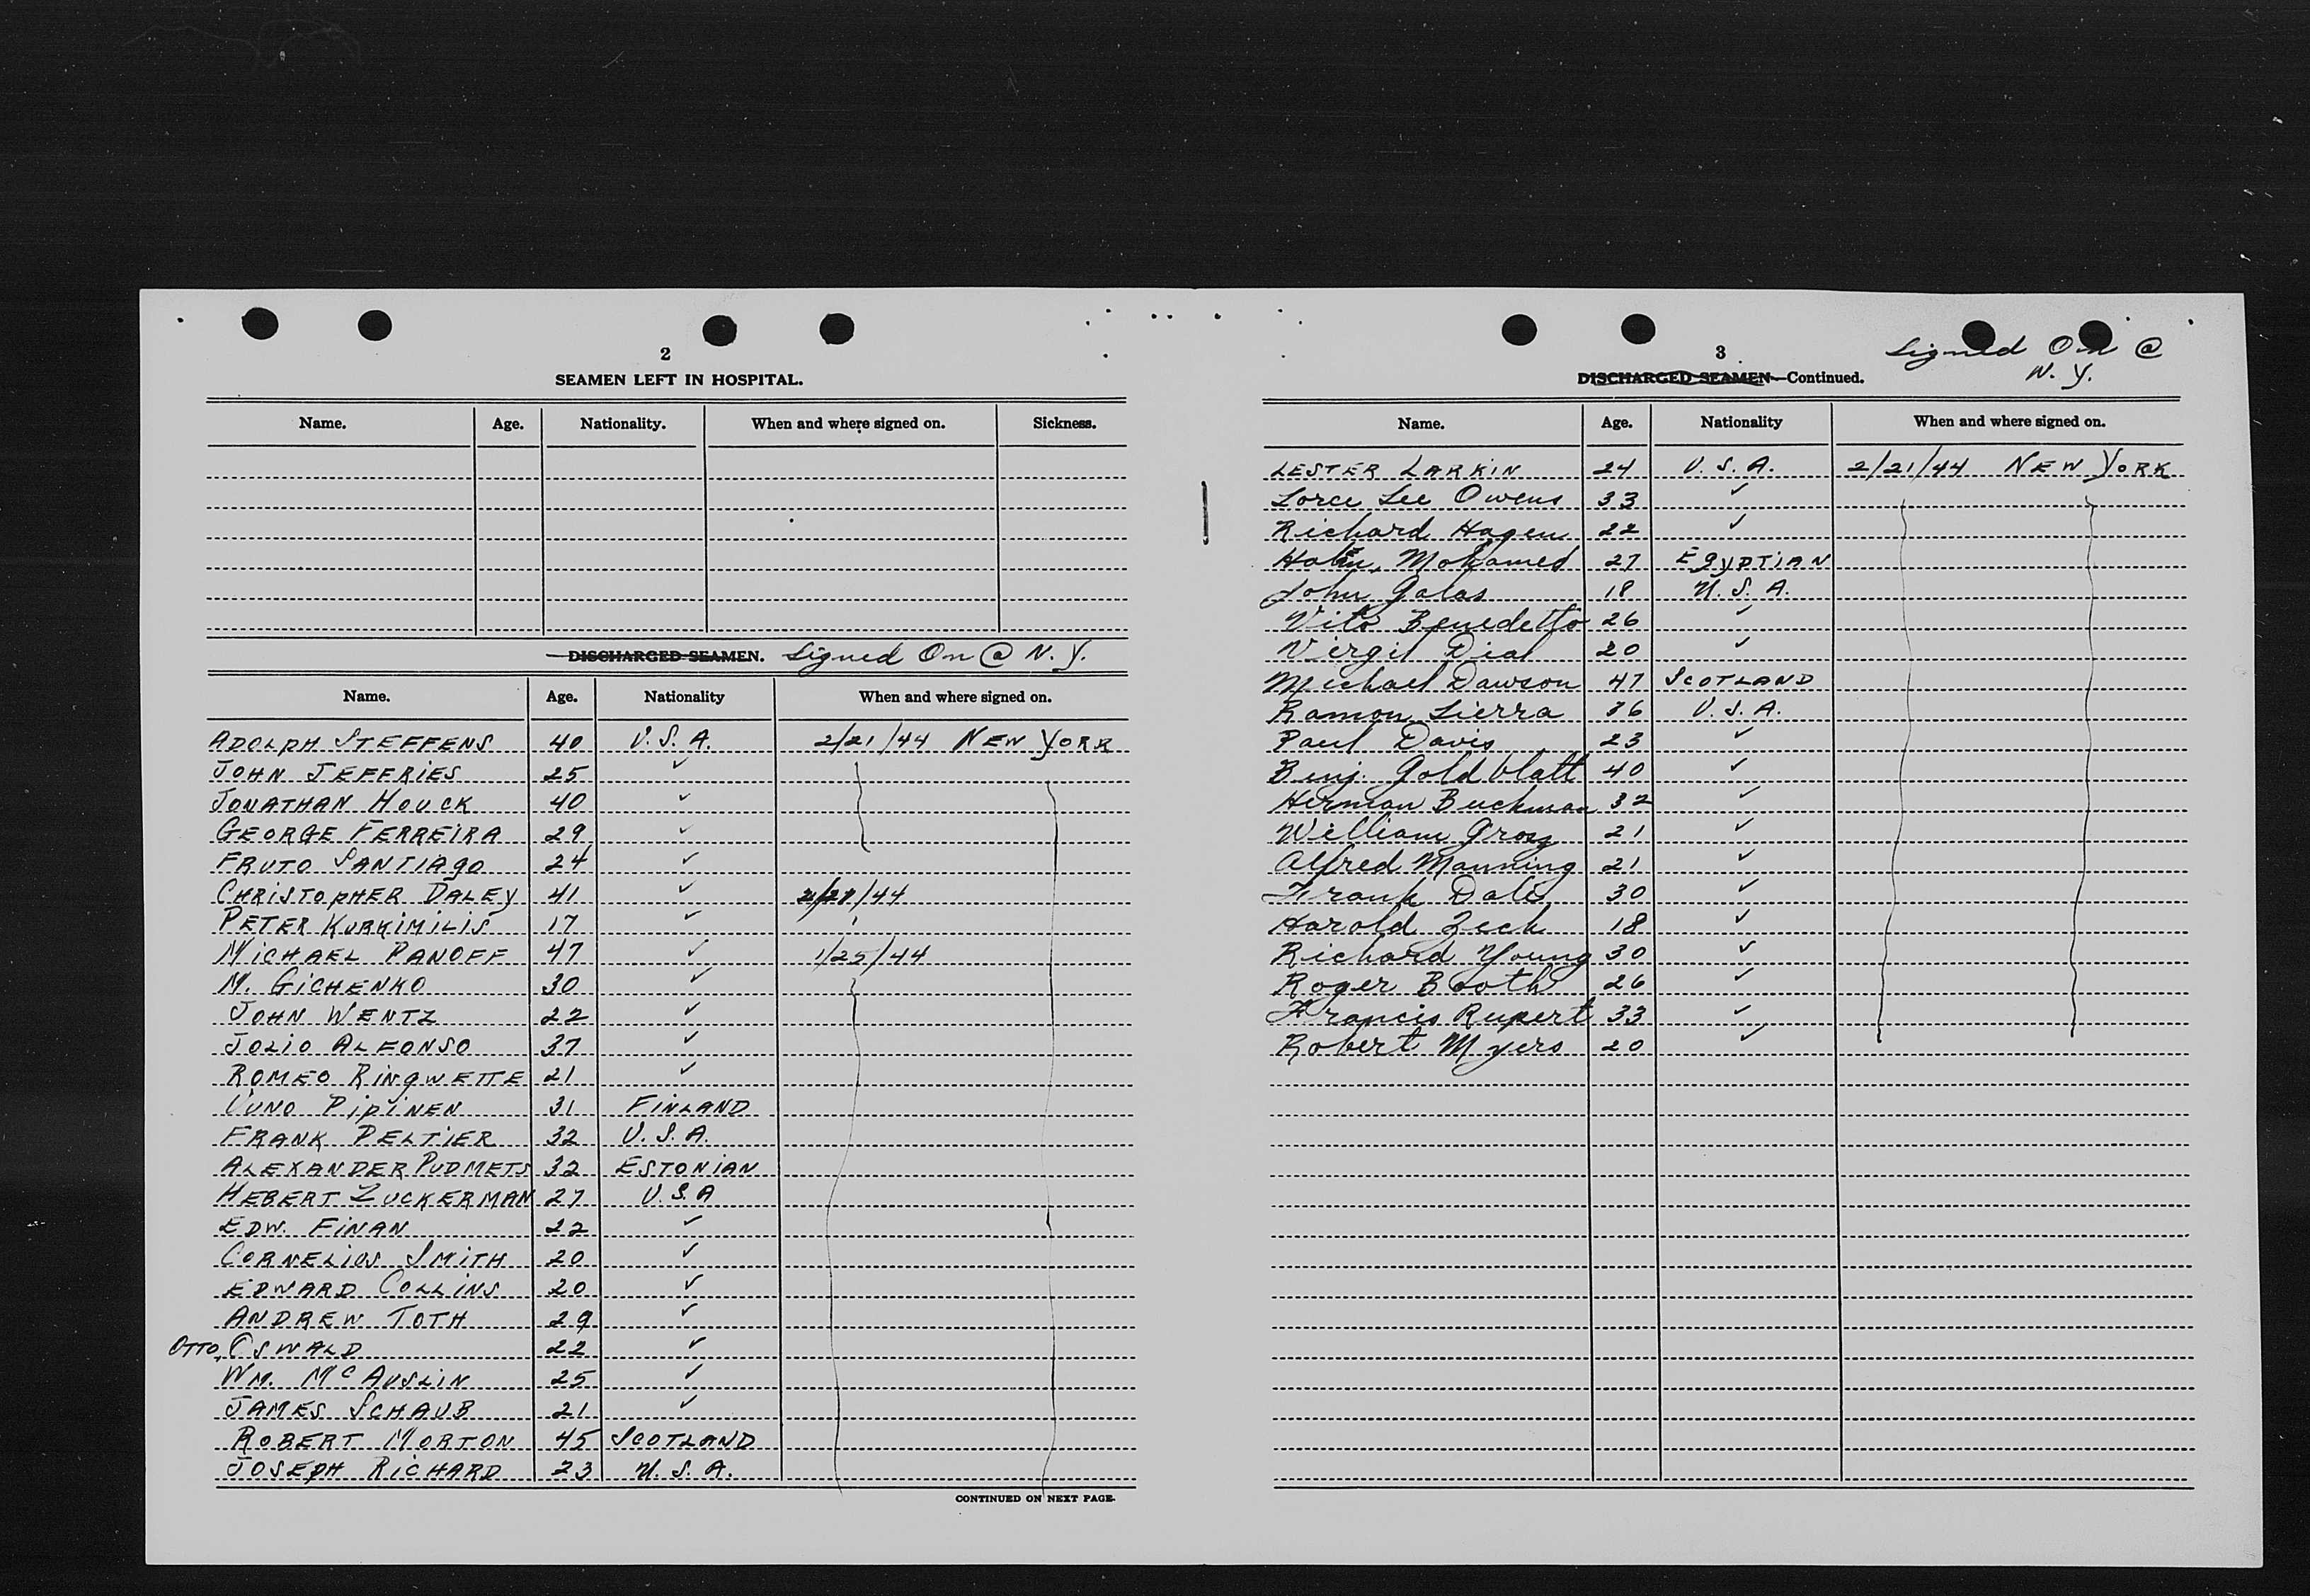 2
SEAMEN LEFT IN HOSPITAL.
Name. Age. Nationality. When and where signed on. Sickness.
DISCHARGED SEAMEN. Signed On @ N.Y.
Name. Age. Nationality When and where signed on.
ADOLPH STEFFENS 40 U.S.A. 2/21/44 NEW YORK
JOHN JEFFRIES 25 ✓
JONATHAN HOUCK 40 ✓
GEORGE FERREIRA 29 ✓
FRUTO SANTIAGO 24 ✓
CHRISTOPHER DALEY 41 ✓ 2/21/44
PETER KURKIMILIS 17 ✓
MICHAEL PANOFF 47 ✓ 1/25/44
M. GICHENKO 30 ✓
JOHN WENTZ 22 ✓
JOLIO ALFONSO 37 ✓
ROMEO RINGWETTE 21 ✓
UUNO PIPINEN 31 FINLAND
FRANK PELTIER 32 U.S.A.
ALEXANDER PUDMETS 32 ESTONIAN
HEBERT ZUCKERMAN 27 U.S.A
EDW. FINAN 22 ✓
CORNELIUS SMITH 20 ✓
EDWARD COLLINS 20 ✓
ANDREW TOTH 29 ✓
OTTO, OSWALD 22 ✓
WM. McAUSLIN 25 ✓
JAMES SCHAUB 21 ✓
ROBERT MORTON 45 SCOTLAND
JOSEPH RICHARD 23 U.S.A.
CONTINUED ON NEXT PAGE.
3
DISCHARGED SEAMEN—Continued.
Signed On @
N.Y.
Name. Age. Nationality When and where signed on.
LESTER LARKIN 24 U.S.A. 2/21/44 NEW YORK
Lorce Lee Owens 33 ✓
Richard Hagen 22 ✓
Mohamed 27 EGYPTIAN
John Galas 18 U.S.A.
Vito Benedetto 26 ✓
Virgil Dial 20 ✓
Michael Dawson 47 SCOTLAND
Ramon Sierra 36 U.S.A.
Paul Davis 23 ✓
Benj. Goldblatt 40 ✓
Herman Buchman 32 ✓
William Grosz 21 ✓
Alfred Manning 21 ✓
Frank Dale 30 ✓
Harold Zech 18 ✓
Richard Young 30 ✓
Roger Booth 26 ✓
Francis Rupert 33 ✓
Robert Myers 20 ✓